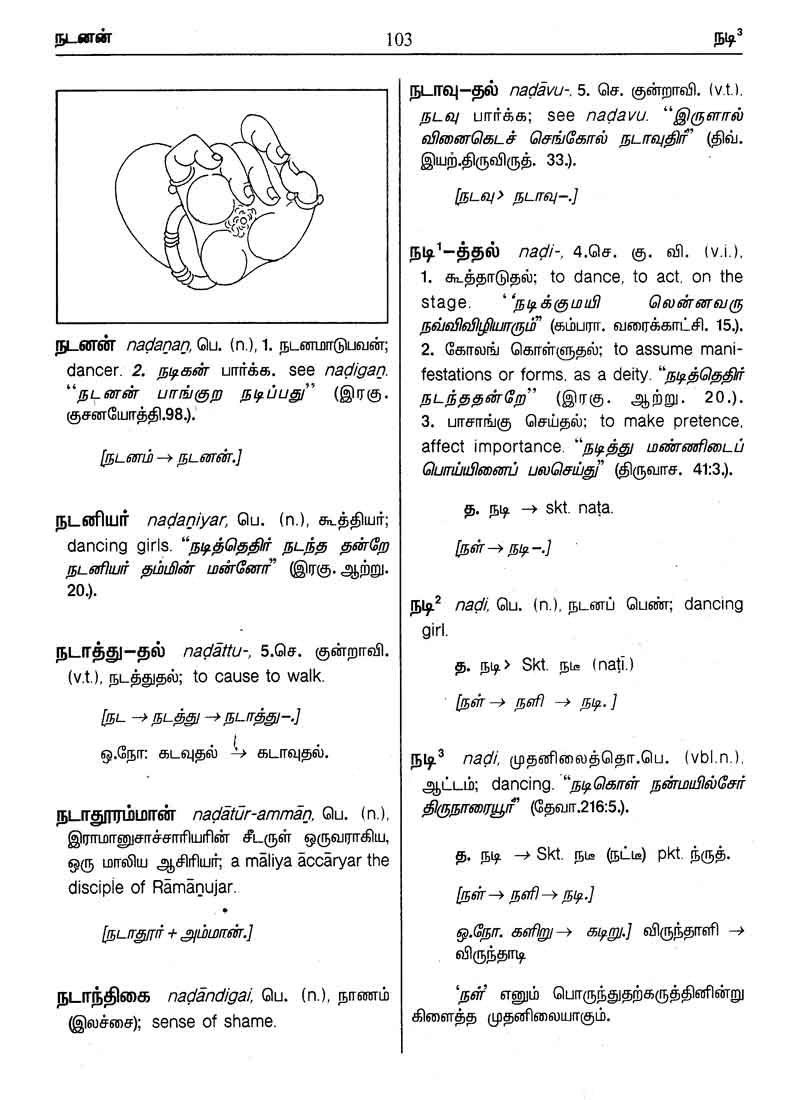 நடனன்
103
நடி³
நடனன் naḍaṉaṉ, பெ. (n.), 1. நடனமாடுபவன்;
dancer. 2. நடிகன் பார்க்க. see naḍigaṉ.
“நடனன் பாங்குற நடிப்பது” (இரகு.
குசனயோத்தி.98.).
[நடனம் → நடனன்.]
நடனியர் naḍaṉiyar, பெ. (n.), கூத்தியர்;
dancing girls. “நடித்தெதிர் நடந்த தன்றே
நடனியர் தம்மின் மன்னோ” (இரகு. ஆற்று.
20.).
நடாத்து–தல் naḍāttu-, 5.செ. குன்றாவி.
(v.t.), நடத்துதல்; to cause to walk.
[நட → நடத்து → நடாத்து–.]
ஒ.நோ: கடவுதல் → கடாவுதல்.
நடாதூரம்மான் naḍātūr-ammāṉ, பெ. (n.),
இராமானுசாச்சாரியரின் சீடருள் ஒருவராகிய,
ஒரு மாலிய ஆசிரியர்; a māliya āccāryar the
disciple of Rāmāṉujar.
[நடாதூர் + அம்மான்.]
நடாந்திகை naḍāndigai, பெ. (n.), நாணம்
(இலச்சை); sense of shame.
நடாவு–தல் naḍāvu-, 5. செ. குன்றாவி. (v.t.),
நடவு பார்க்க; see naḍavu. “இருளால்
வினைகெடச் செங்கோல் நடாவுதிர்” (திவ்.
இயற்.திருவிருத். 33.).
[நடவு > நடாவு–.]
நடி¹–த்தல் naḍi-, 4.செ. கு. வி. (v.i.),
1. கூத்தாடுதல்; to dance, to act, on the
stage. “நடிக்குமயி லென்னவரு
நவ்விவிழியாரும்” (கம்பரா. வரைக்காட்சி. 15.).
2. கோலங் கொள்ளுதல்; to assume mani-
festations or forms, as a deity. “நடித்தெதிர்
நடந்ததன்றே” (இரகு. ஆற்று. 20.).
3. பாசாங்கு செய்தல்; to make pretence,
affect importance. “நடித்து மண்ணிடைப்
பொய்யினைப் பலசெய்து” (திருவாச. 41:3.).
த. நடி → skt. naṭa.
[நள் → நடி–.]
நடி² naḍi, பெ. (n.), நடனப் பெண்; dancing
girl.
த. நடி > Skt. நடீ (naṭī.)
[நள் → நளி → நடி. ]
நடி³ naḍi, முதனிலைத்தொ.பெ. (vbl.n.),
ஆட்டம்; dancing. “நடிகொள் நன்மயில்சேர்
திருநாரையூர்” (தேவா.216:5.).
த. நடி → Skt. நடீ (நட்டீ) pkt. ந்ருத்.
[நள் → நளி → நடி.]
ஒ.நோ. களிறு → கடிறு.] விருந்தாளி →
விருந்தாடி
‘நள்’ எனும் பொருந்துதற்கருத்தினின்று
கிளைத்த முதனிலையாகும்.